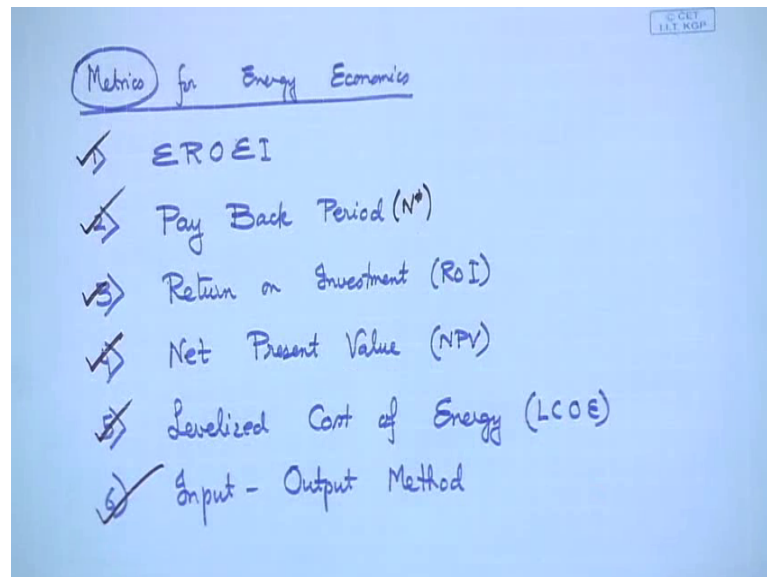 © CET
I.I.T. KGP
Metrics for Energy Economics
1) EROEI
2) Pay Back Period (N*)
3) Return on Investment (RoI)
4) Net Present Value (NPV)
5) Levelized Cost of Energy (LCOE)
6) Input - Output Method